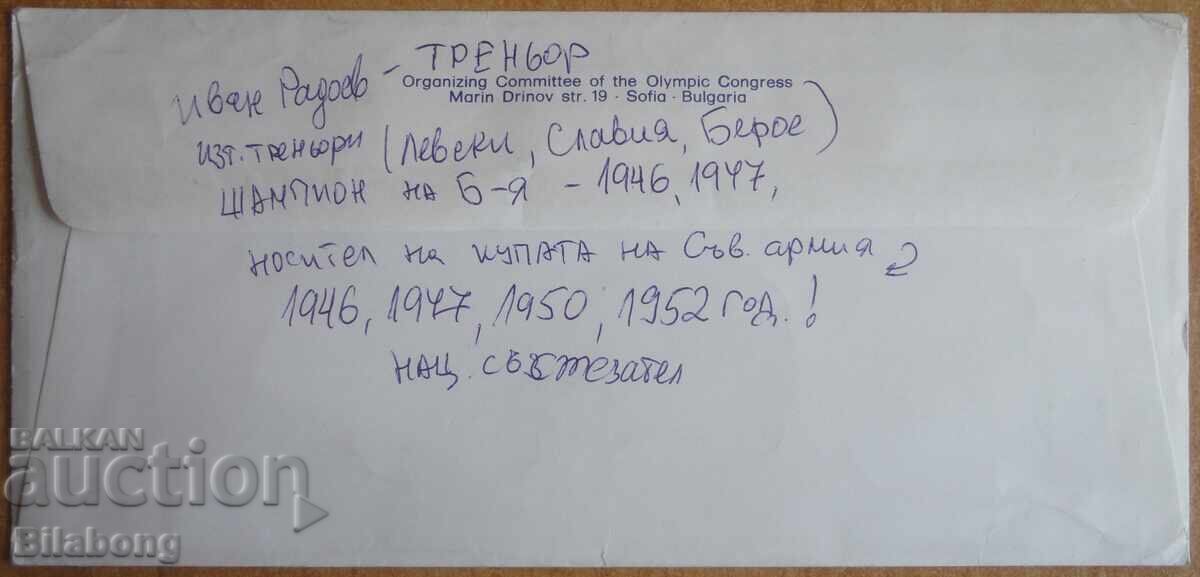 Иван Радоев - ТРЕНЬОР
Organizing Committee of the Olympic Congress
Marin Drinov str. 19 · Sofia · Bulgaria
изт. треньори (Левски, Славия, Берое)
ШАМПИОН на Б-Я - 1946, 1947,
носител на купата на Съв. армия
1946, 1947, 1950, 1952 год.!
нац. състезател
BALKAN
auction
Bilabong